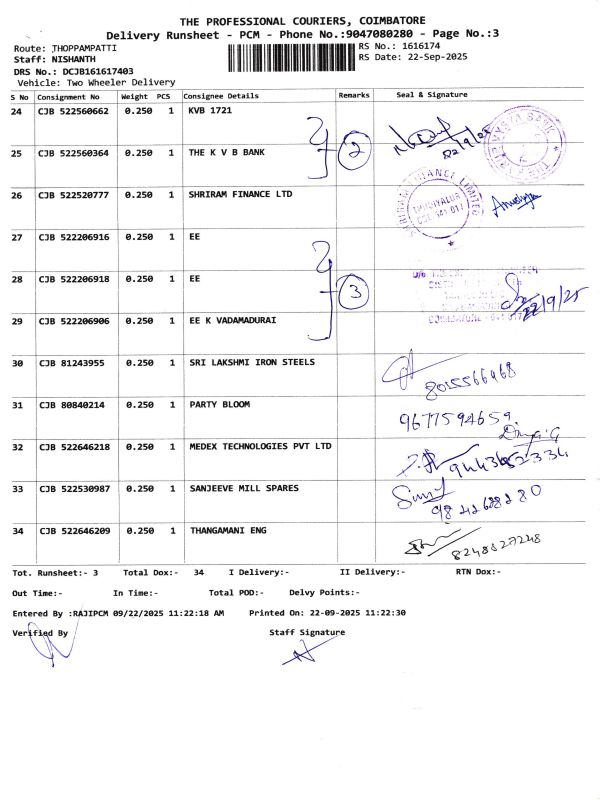 THE PROFESSIONAL COURIERS, COIMBATORE
Delivery Runsheet - PCM - Phone No.:9047080280 - Page No.:3
Route: THOPPAMPATTI RS No.: 1616174
Staff: NISHANTH RS Date: 22-Sep-2025
DRS No.: DCJB161617403
Vehicle: Two Wheeler Delivery
S No Consignment No Weight PCS Consignee Details Remarks Seal & Signature
24 CJB 522560662 0.250 1 KVB 1721
2 22/9/25
25 CJB 522560364 0.250 1 THE K V B BANK
26 CJB 522520777 0.250 1 SHRIRAM FINANCE LTD
27 CJB 522206916 0.250 1 EE
28 CJB 522206918 0.250 1 EE 3 22/9/25
29 CJB 522206906 0.250 1 EE K VADAMADURAI
30 CJB 81243955 0.250 1 SRI LAKSHMI IRON STEELS
8015566468
31 CJB 80840214 0.250 1 PARTY BLOOM 9677594659
32 CJB 522646218 0.250 1 MEDEX TECHNOLOGIES PVT LTD
33 CJB 522530987 0.250 1 SANJEEVE MILL SPARES
34 CJB 522646209 0.250 1 THANGAMANI ENG
8248827248
Tot. Runsheet:- 3 Total Dox:- 34 I Delivery:- II Delivery:- RTN Dox:-
Out Time:- In Time:- Total POD:- Delvy Points:-
Entered By :RAJIPCM 09/22/2025 11:22:18 AM Printed On: 22-09-2025 11:22:30
Verified By Staff Signature